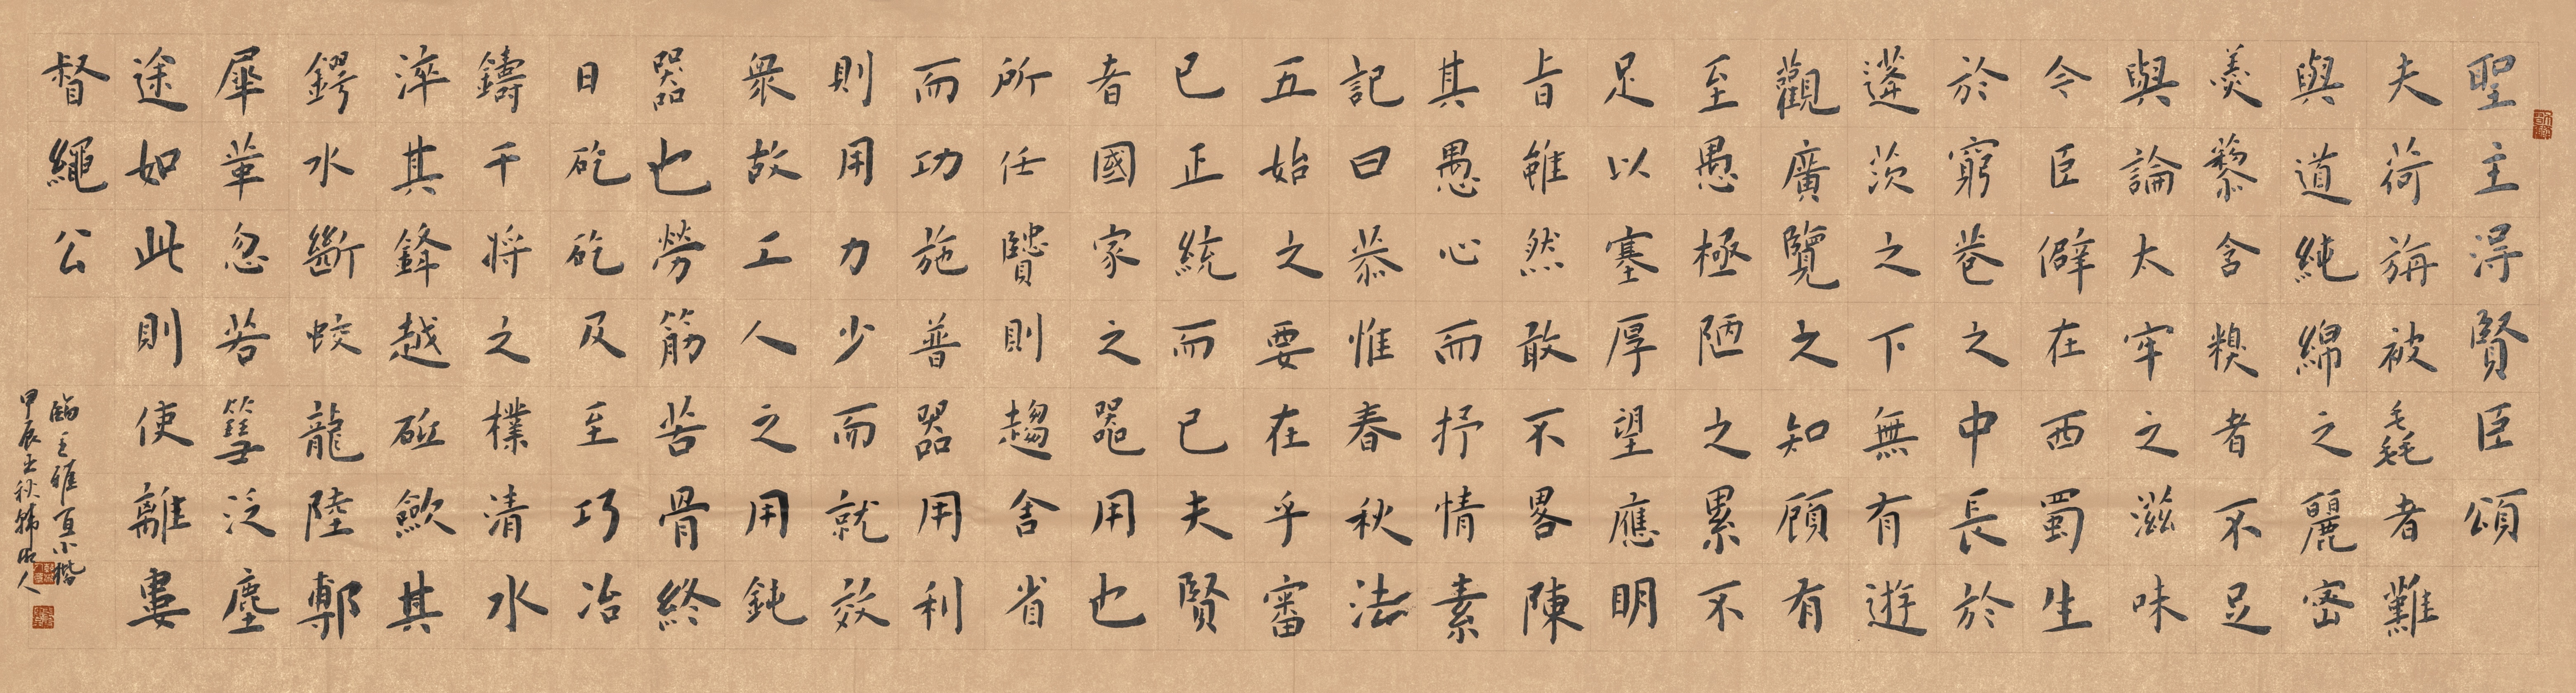 聖主得賢臣頌
夫荷旃被毳者難
與道純綿之麗密
羹藜含糗者不足
與論太牢之滋味
今臣僻在西蜀生
於窮巷之中長於
蓬茨之下無有遊
觀廣覽之知顧有
至愚極陋之累不
足以塞厚望應明
旨雖然敢不畧陳
其愚心而抒情素
記曰恭惟春秋法
五始之要在乎審
己正統而已夫賢
者國家之器用也
所任賢則趨舍省
而功施普器用利
則用力少而就效
衆故工人之用鈍
器也勞筋苦骨終
日矻矻及至巧冶
鑄干將之樸清水
淬其鋒越砥歛其
鍔水斷蛟龍陸剸
犀革忽若篲泛塵
途如此則使離婁
督繩公
臨王雅宜小楷
甲辰 秋 人